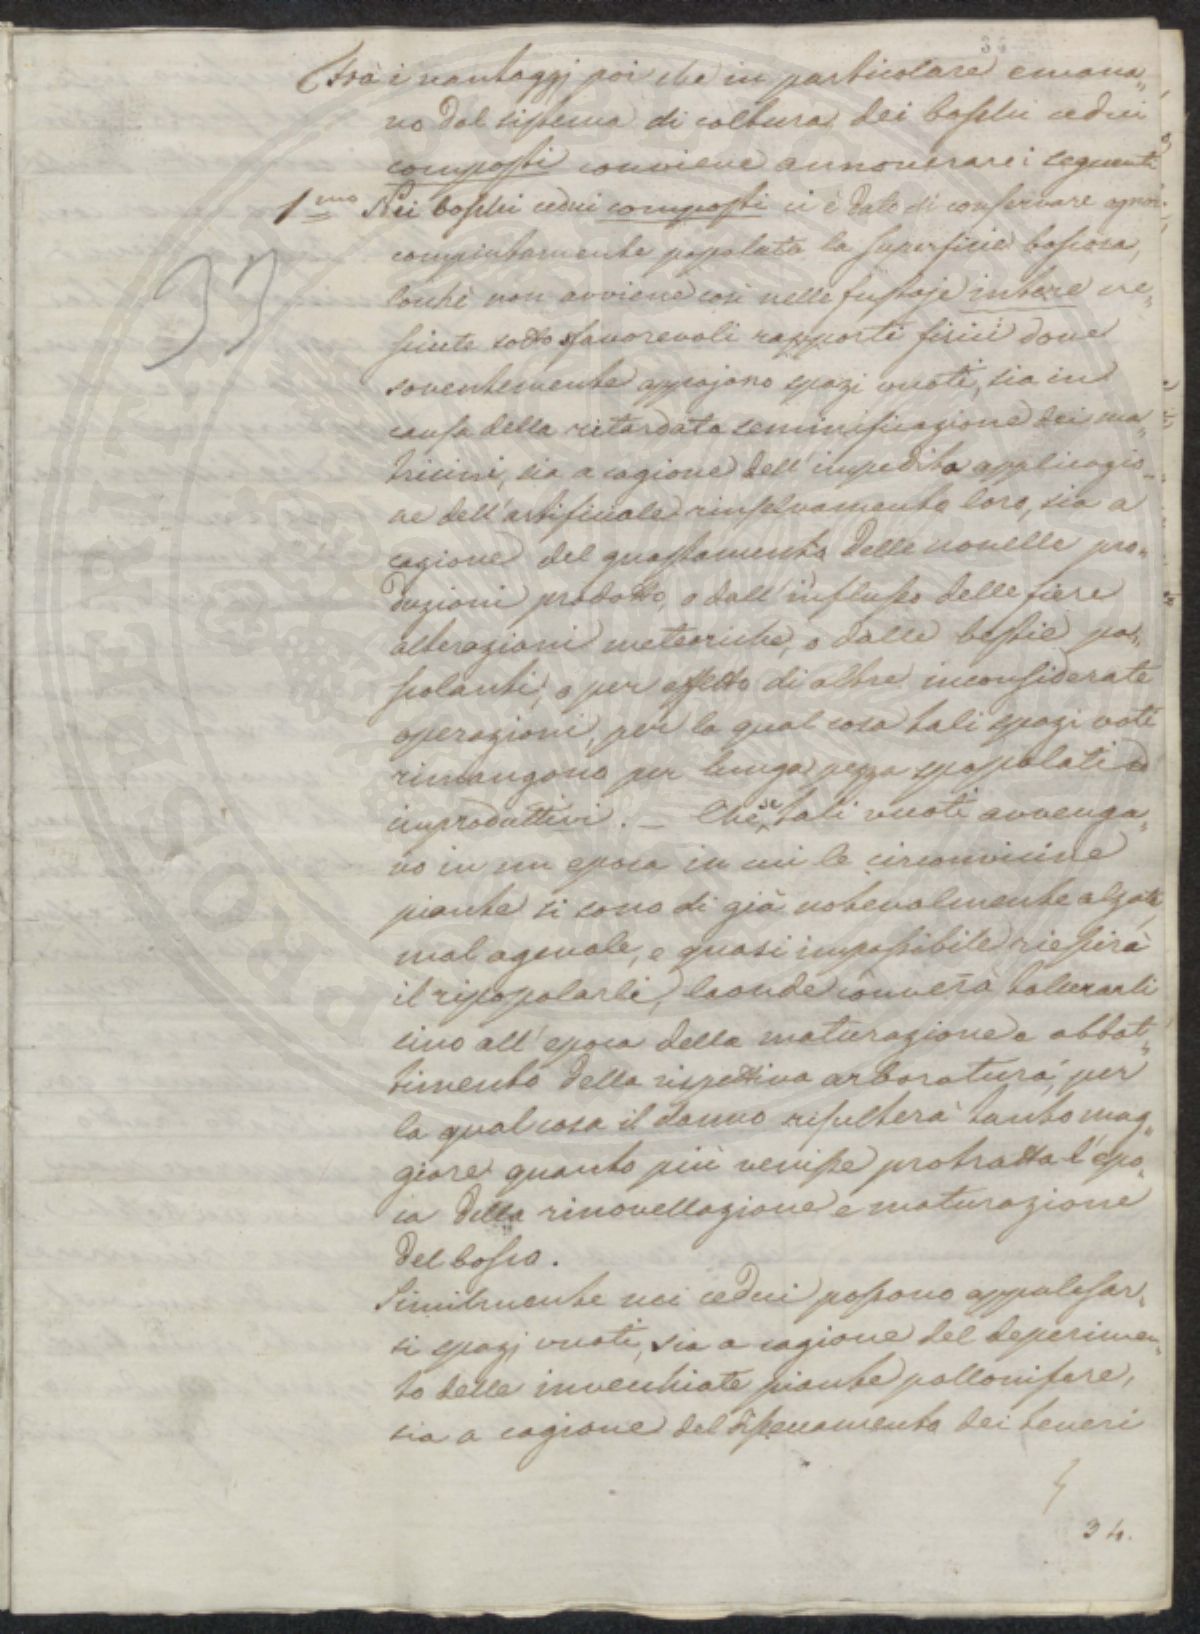 34
Frà i vantaggj poi che in particolare emana„
no dal sistema di coltura dei boschi cedui
composti conviene annoverare i seguenti
1mo Nei boschi cedui composti ci è dato di conservare ognor
compiutamente popolata la superficie boscosa,
locchè non avviene così nelle fustaje intere cre„
sciute sotto sfavorevoli rapporti fisici dove
soventemente appajono spazi vuoti, sia in
causa della ritardata seminificazione dei ma„
tricini, sia a cagione dell'impedita applicazio„
ne dell'artificiale rinselvamento loro, sia a
cagione del guastamento delle novelle pro„
duzioni prodotto, o dall'influsso delle fiere
alterazioni meteoriche, o dalle bestie pa„
scolanti, o per effetto di altre inconsiderate
operazioni, per la qual cosa tali spazi voti
rimangono per lunga pezza spopolati ed
improduttivi. — Che se tali vuoti avvenga„
no in un epoca in cui le circonvicine
piante si sono di già notevolmente alzate
mal agevole, e quasi impossibile riescirà
il ripopolarli, laonde converrà tollerarli
sino all'epoca della maturazione e abbat„
timento della rispettiva arboratura, per
la qual cosa il danno risulterà tanto mag„
giore quanto più venisse protratta l'epo„
ca della rinovellazione e maturazione
del bosco.
Similmente nei cedui possono appalesar„
si spazj vuoti, sia a cagione del deperimen„
to delle invecchiate piante pollonifere,
sia a cagione del dissecamento dei teneri
33
34.
PROSPERITATI PUBLICAE